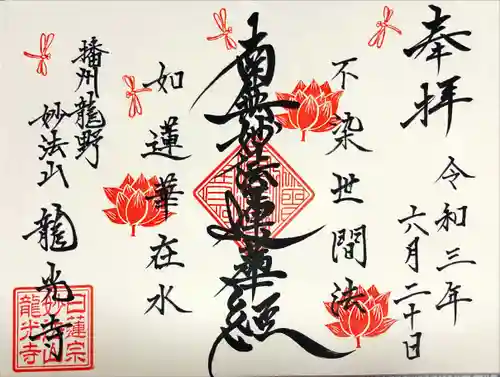 奉拝
令和三年
六月二十日
不染世間法
南無妙法蓮華経
如蓮華在水
播州龍野
妙法山
龍光寺
日蓮宗
妙法山
龍光寺